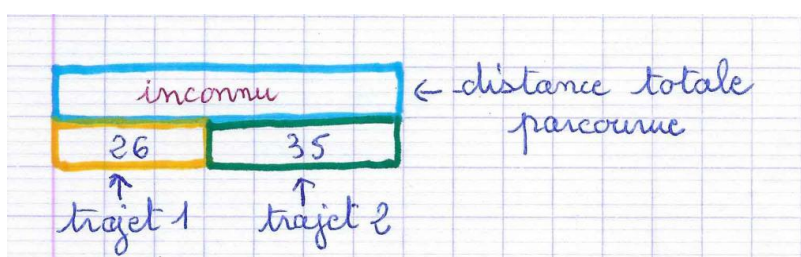 inconnu
← distance totale
parcourue
26 35
↑ ↑
trajet 1 trajet 2